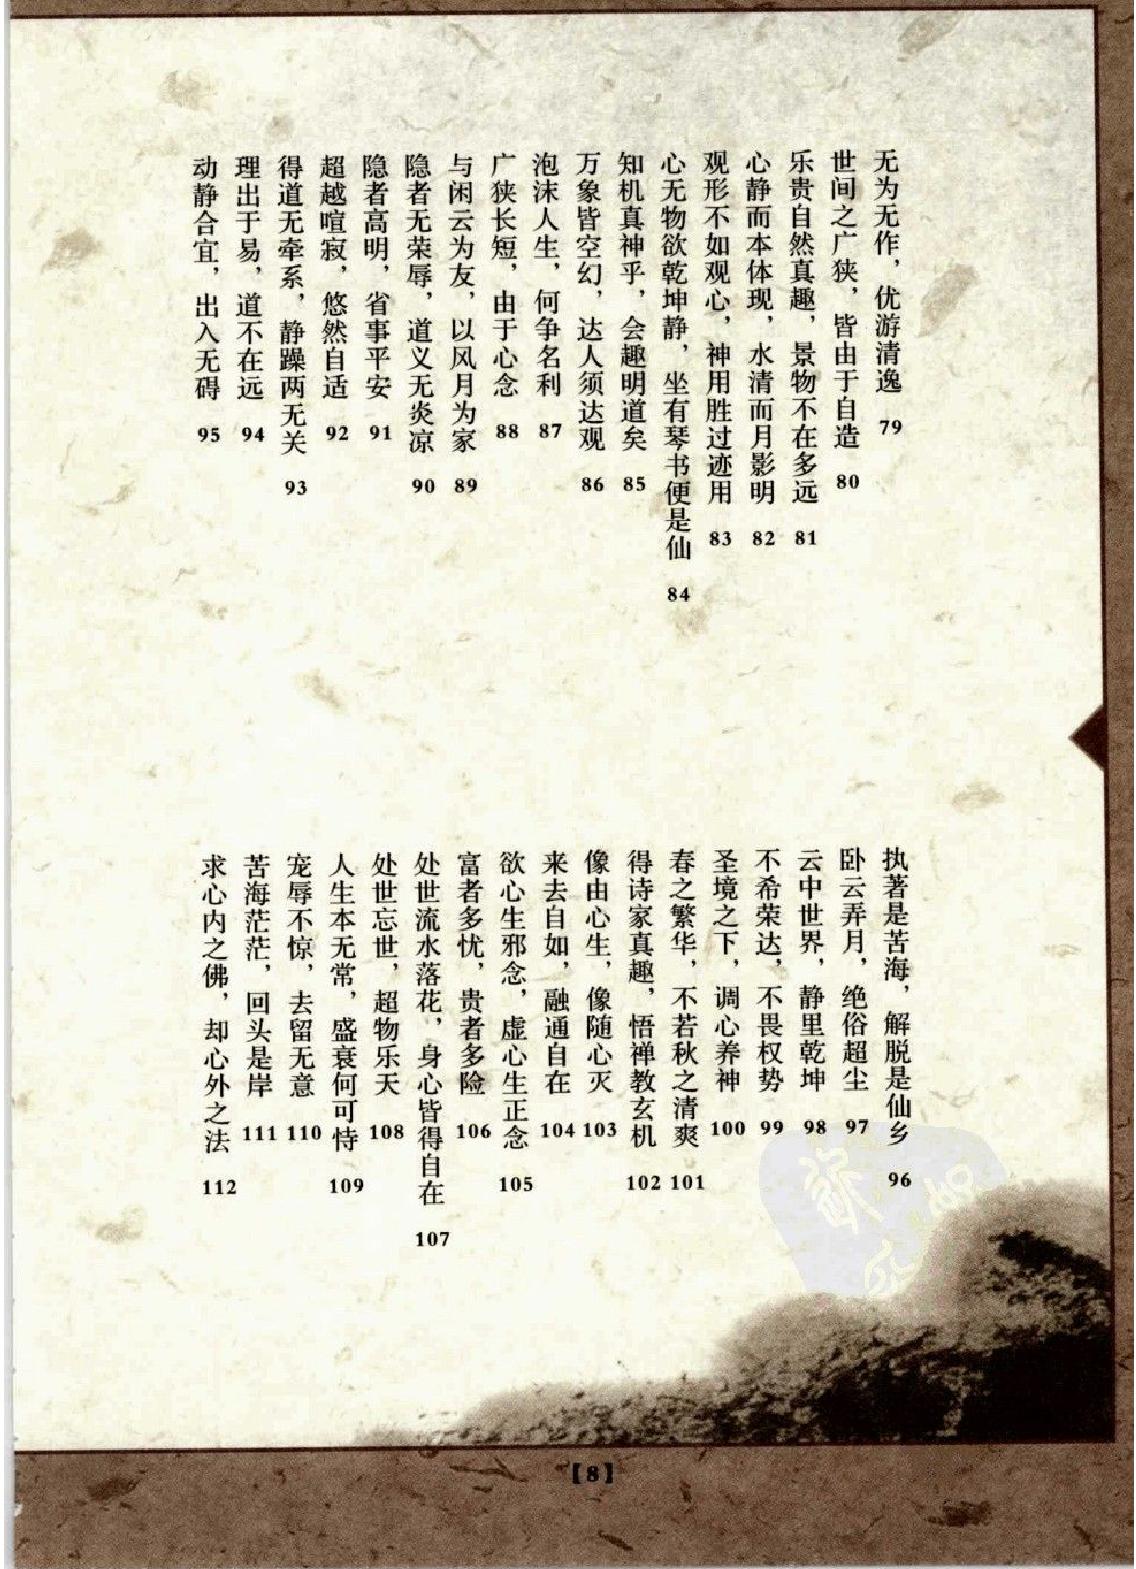 无为无作，优游清逸 79
世间之广狭，皆由于自造 80
乐贵自然真趣，景物不在多远 81
心静而本体现，水清而月影明 82
观形不如观心，神用胜过迹用 83
心无物欲乾坤静，坐有琴书便是仙 84
知机真神乎，会趣明道矣 85
万象皆空幻，达人须达观 86
泡沫人生，何争名利 87
广狭长短，由于心念 88
与闲云为友，以风月为家 89
隐者无荣辱，道义无炎凉 90
隐者高明，省事平安 91
超越喧寂，悠然自适 92
得道无牵系，静躁两无关 93
理出于易，道不在远 94
动静合宜，出入无碍 95
执著是苦海，解脱是仙乡 96
卧云弄月，绝俗超尘 97
云中世界，静里乾坤 98
不希荣达，不畏权势 99
圣境之下，调心养神 100
春之繁华，不若秋之清爽 101
得诗家真趣，悟禅教玄机 102
像由心生，像随心灭 103
来去自如，融通自在 104
欲心生邪念，虚心生正念 105
富者多忧，贵者多险 106
处世流水落花，身心皆得自在 107
处世忘世，超物乐天 108
人生本无常，盛衰何可恃 109
宠辱不惊，去留无意 110
苦海茫茫，回头是岸 111
求心内之佛，却心外之法 112
【8】